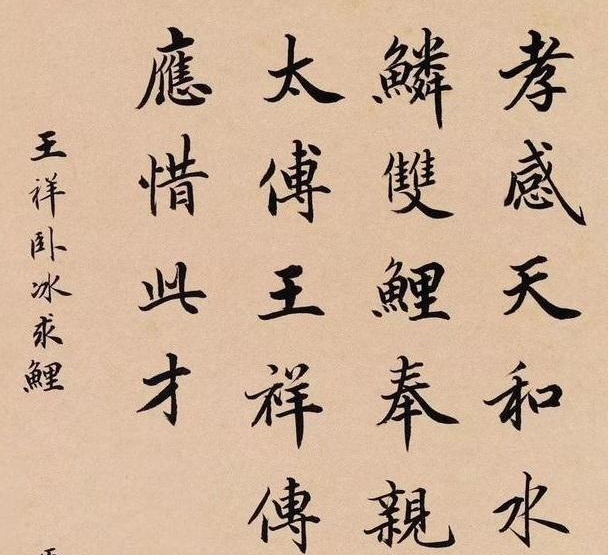 孝感天和水
鱗雙鯉奉親
太傅王祥傳
應惜此才
王祥卧冰求鯉